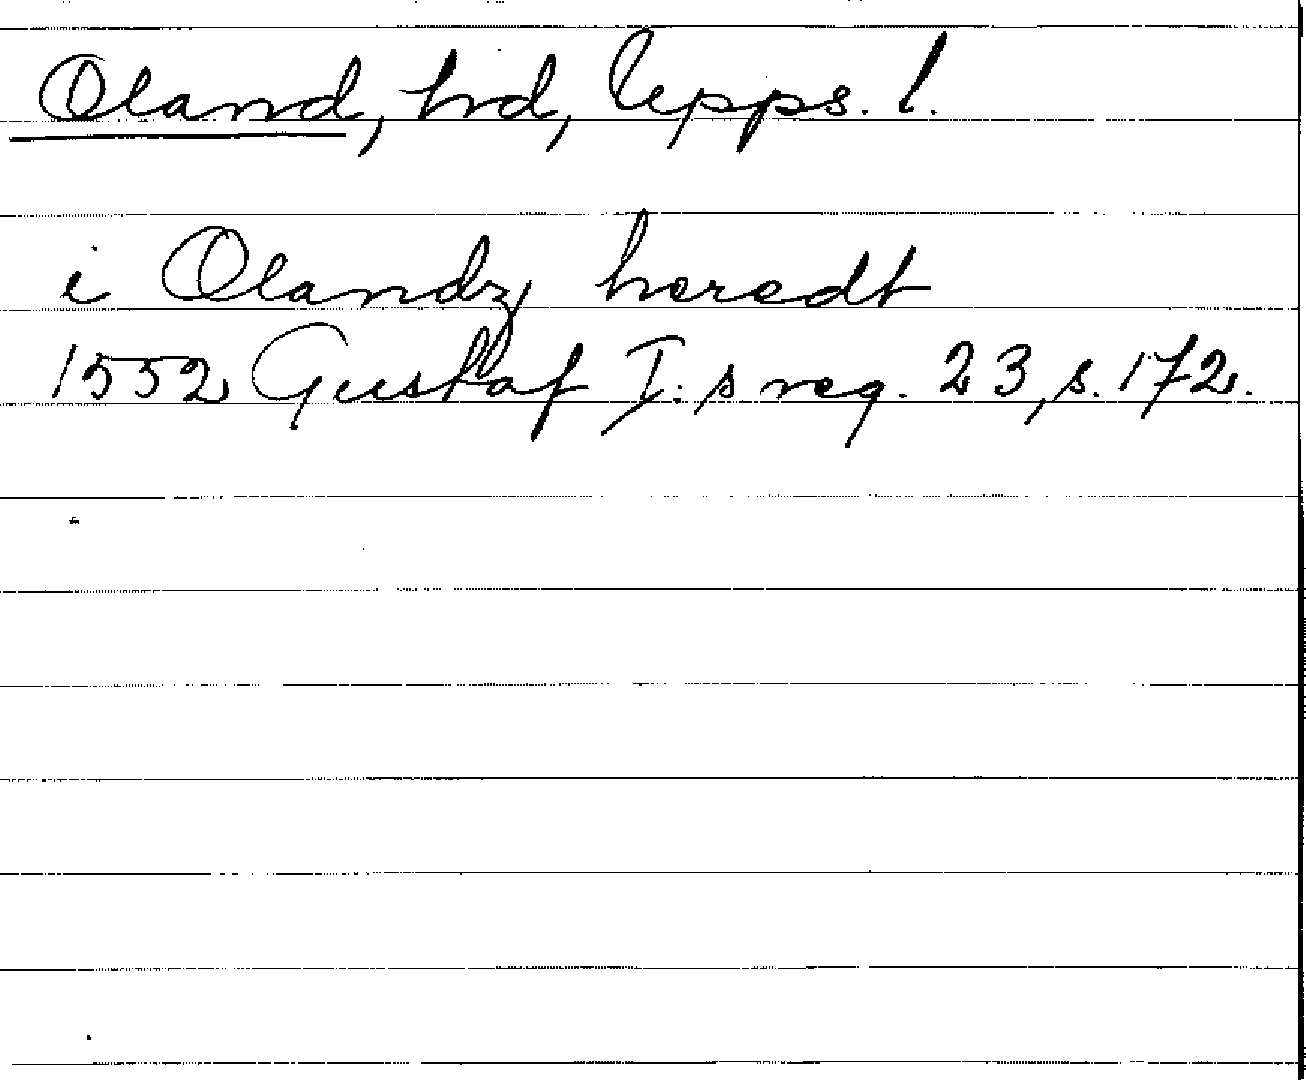 Oland, hd, Upps. l.
i Olandz heredt
1552 Gustaf I:s reg. 23, s. 172.